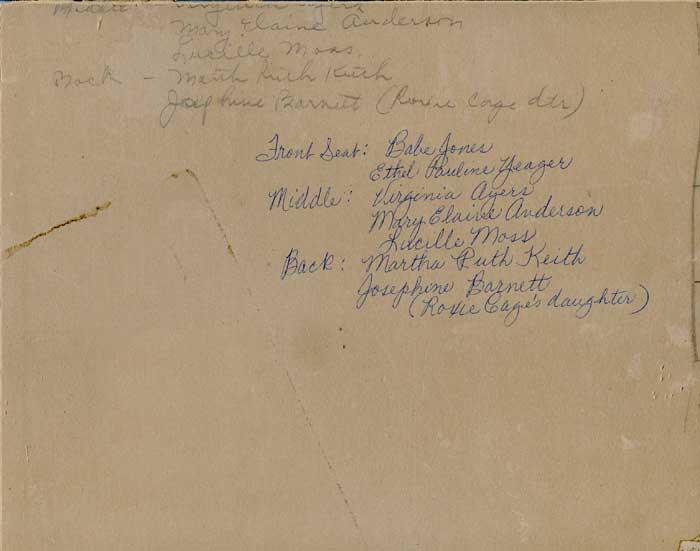 Middle: Virginia Ayers
Mary Elaine Anderson
Lucille Moss
Back - Math Ruth Keith
Josephine Barnett (Roxie Cage dtr)
Front Seat: Babe Jones
Ethel Pauline Yeager
Middle: Virginia Ayers
Mary Elaine Anderson
Lucille Moss
Back: Martha Ruth Keith
Josephine Barnett
(Roxie Cage's daughter)